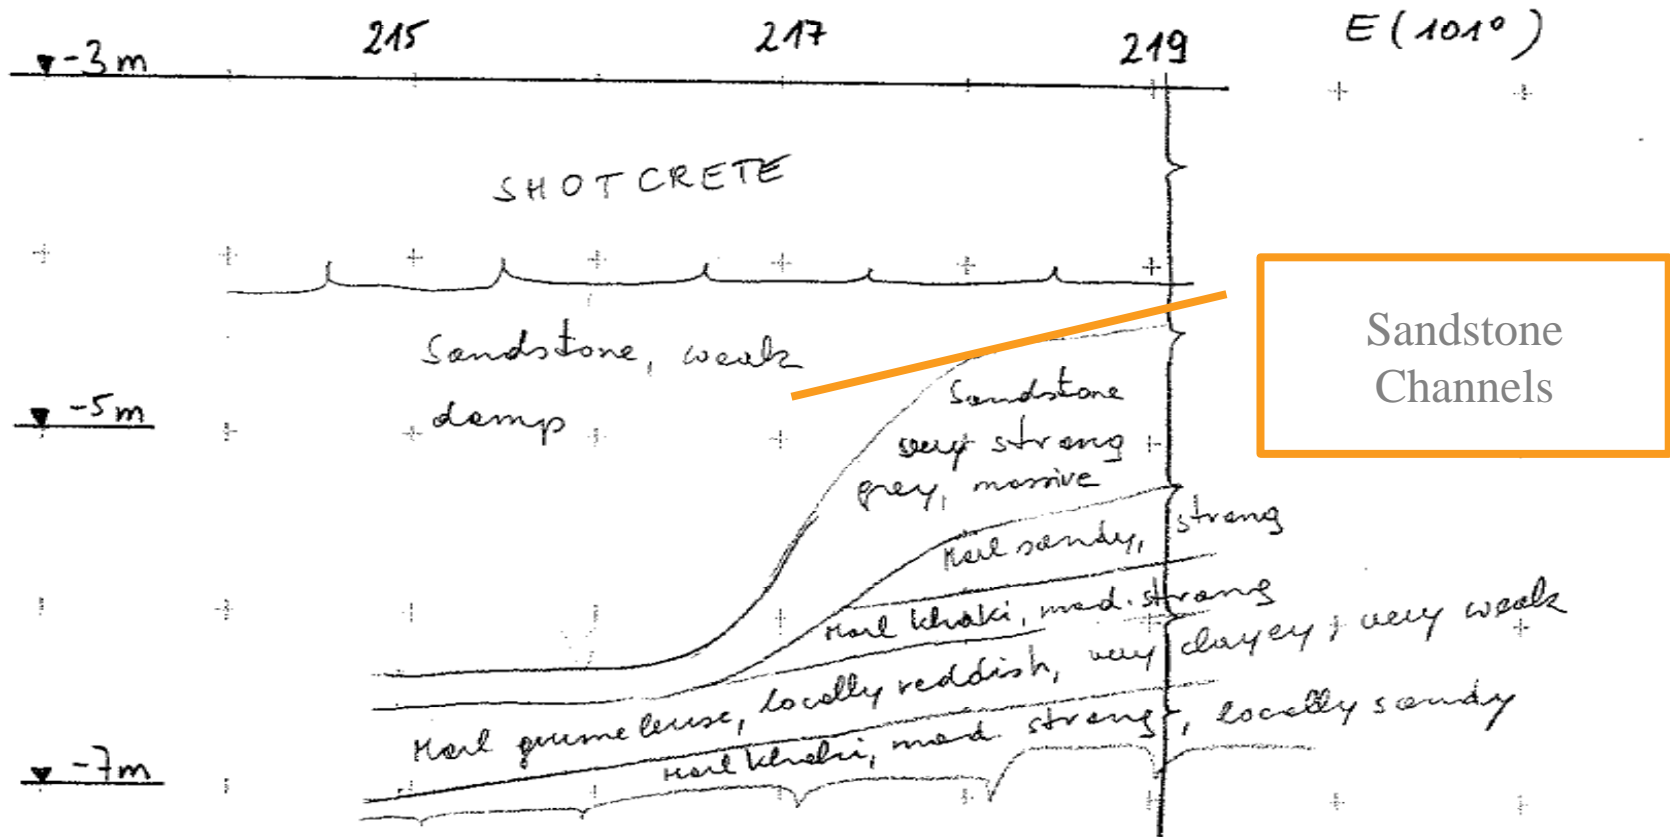 215 217 219 E (101°)
-3m
SHOTCRETE
Sandstone, weak
damp
Sandstone
Channels
-5m
Sandstone
very strong
grey, massive
Marl sandy, strong
Marl khaki, mod. strong
Marl grumeleuse, locally reddish, very clayey, very weak
Marl khaki, mod. strong, locally sandy
-7m